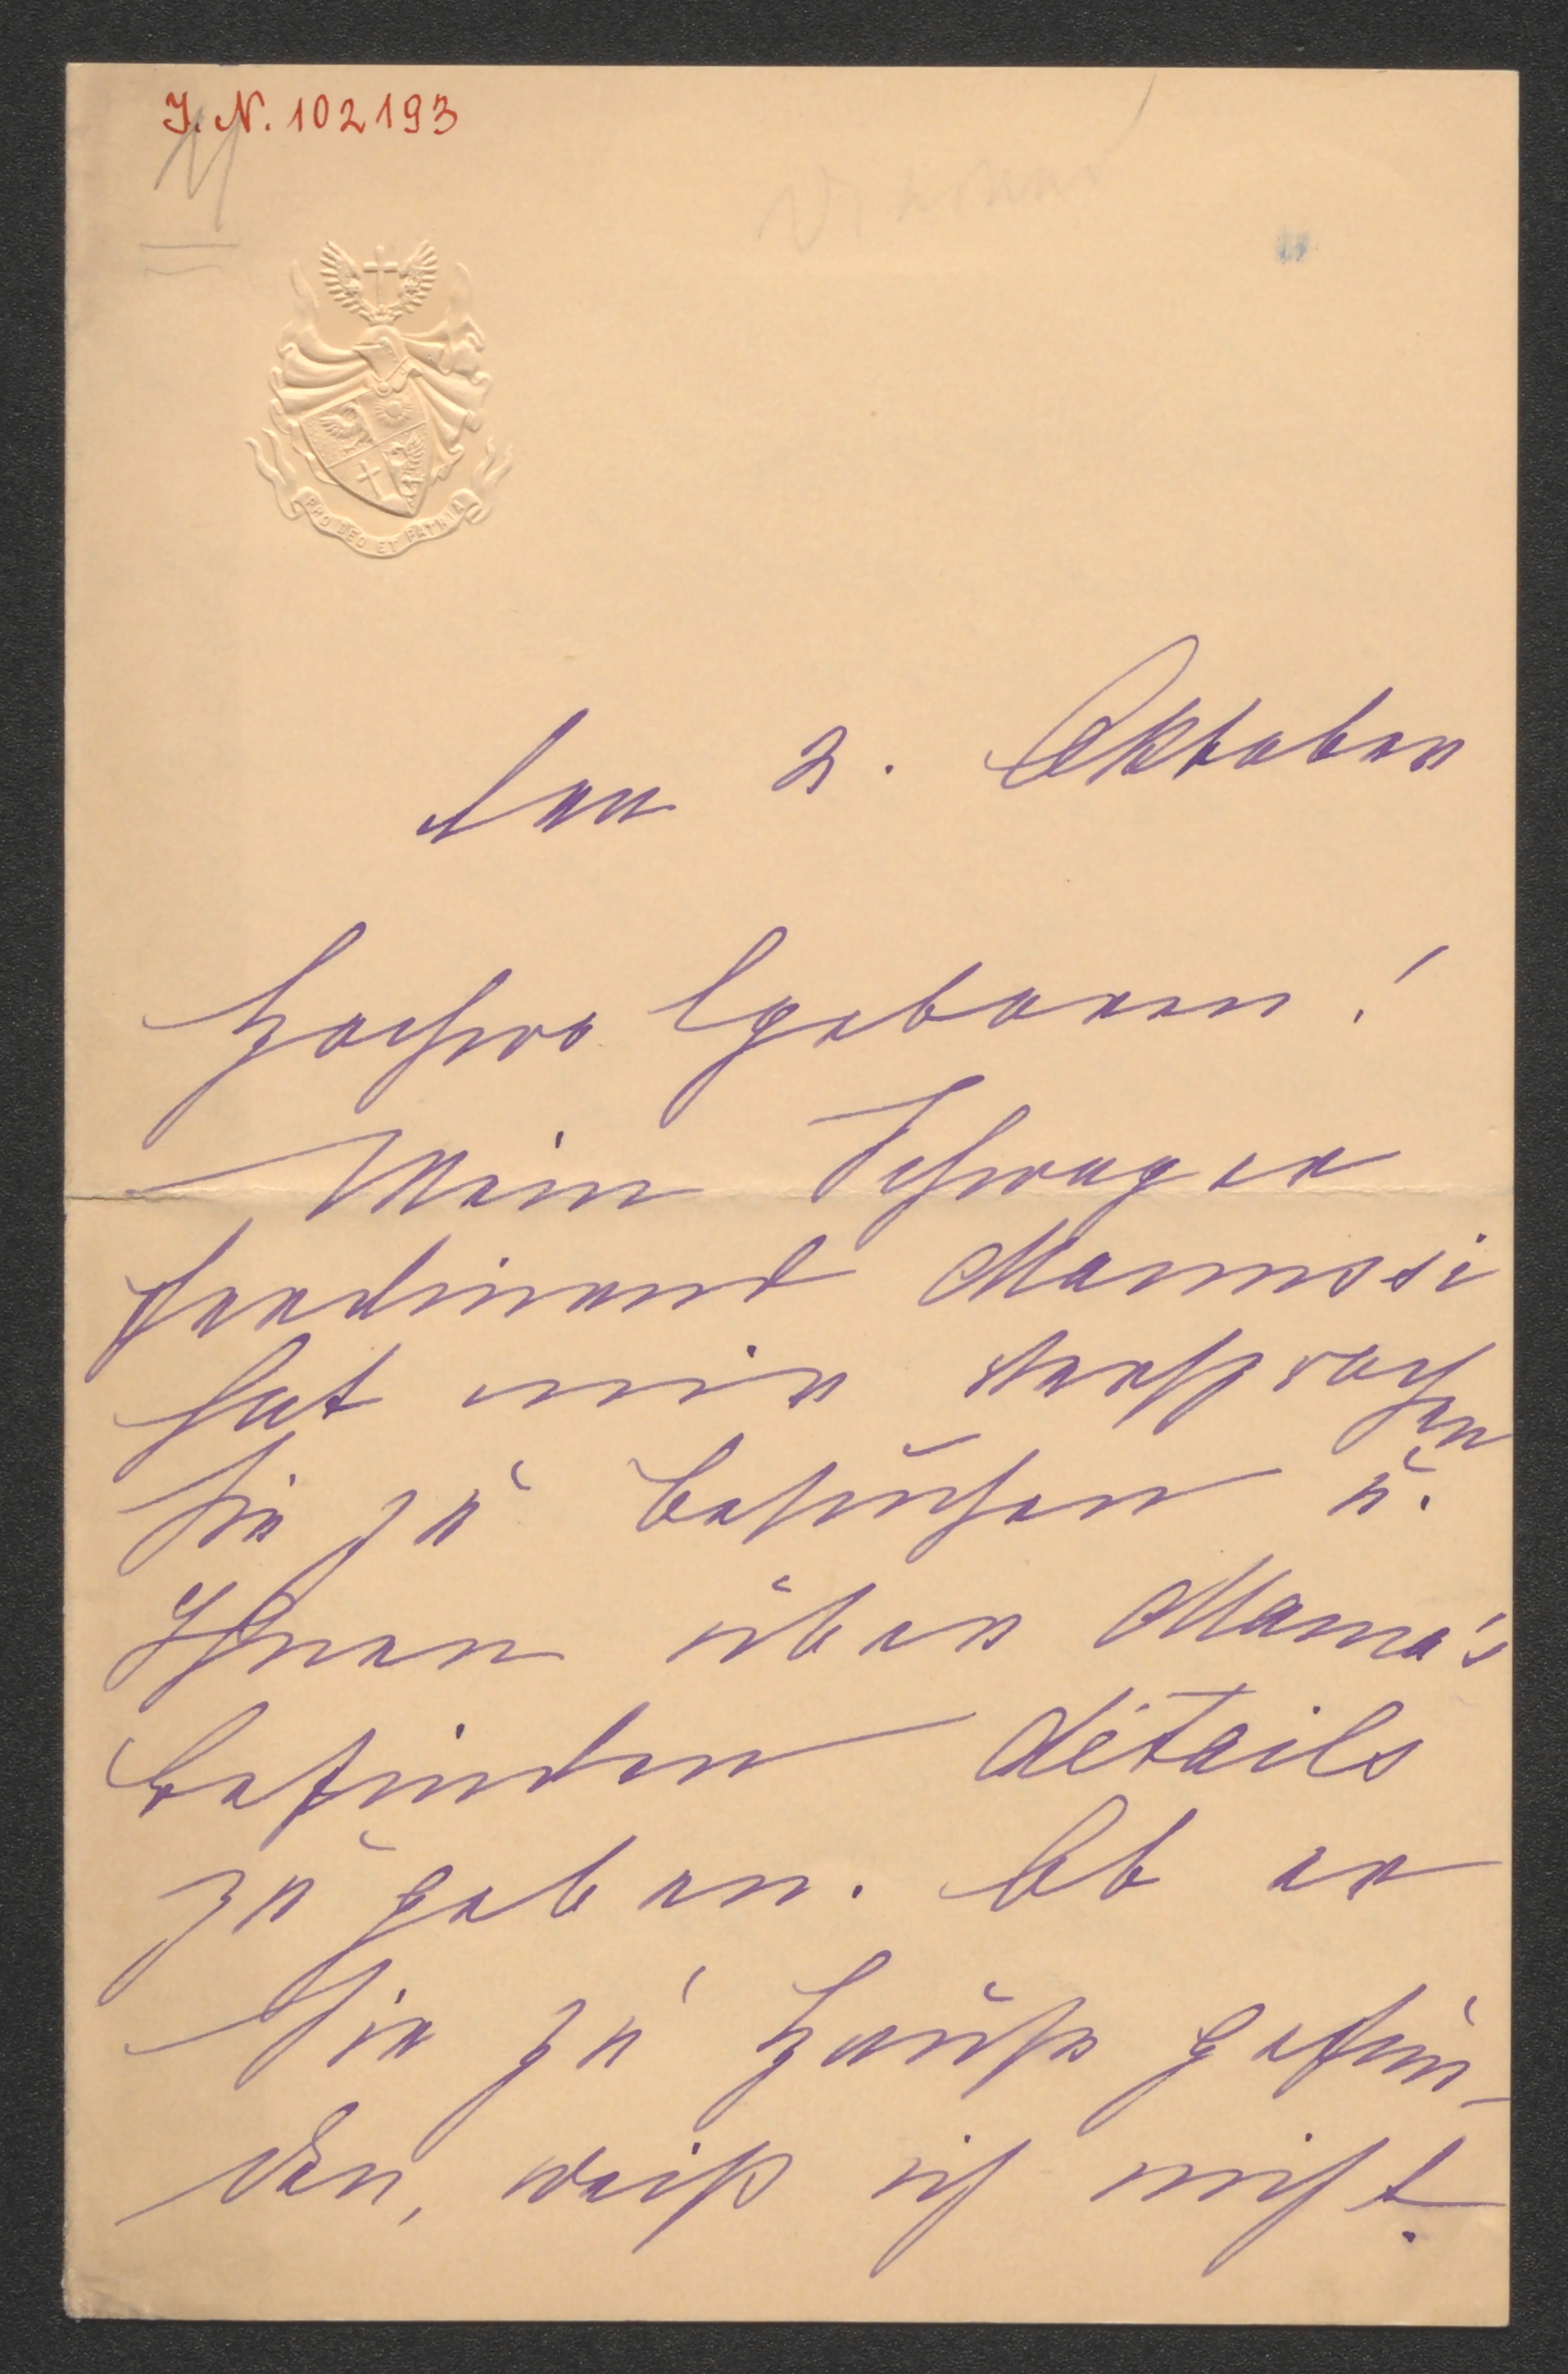 J. N. 102193
PRO DEO ET PATRIA
den 2. Oktober
Hochwolgeboren!
Mein Schwager
Ferdinand Mannssi
hat mir versprochen
Sie zu besuchen u.
Ihnen über Mama's
befinden détails
zu geben. Ob er
Sie zu Hause gefun-
den, weiß ich nicht.